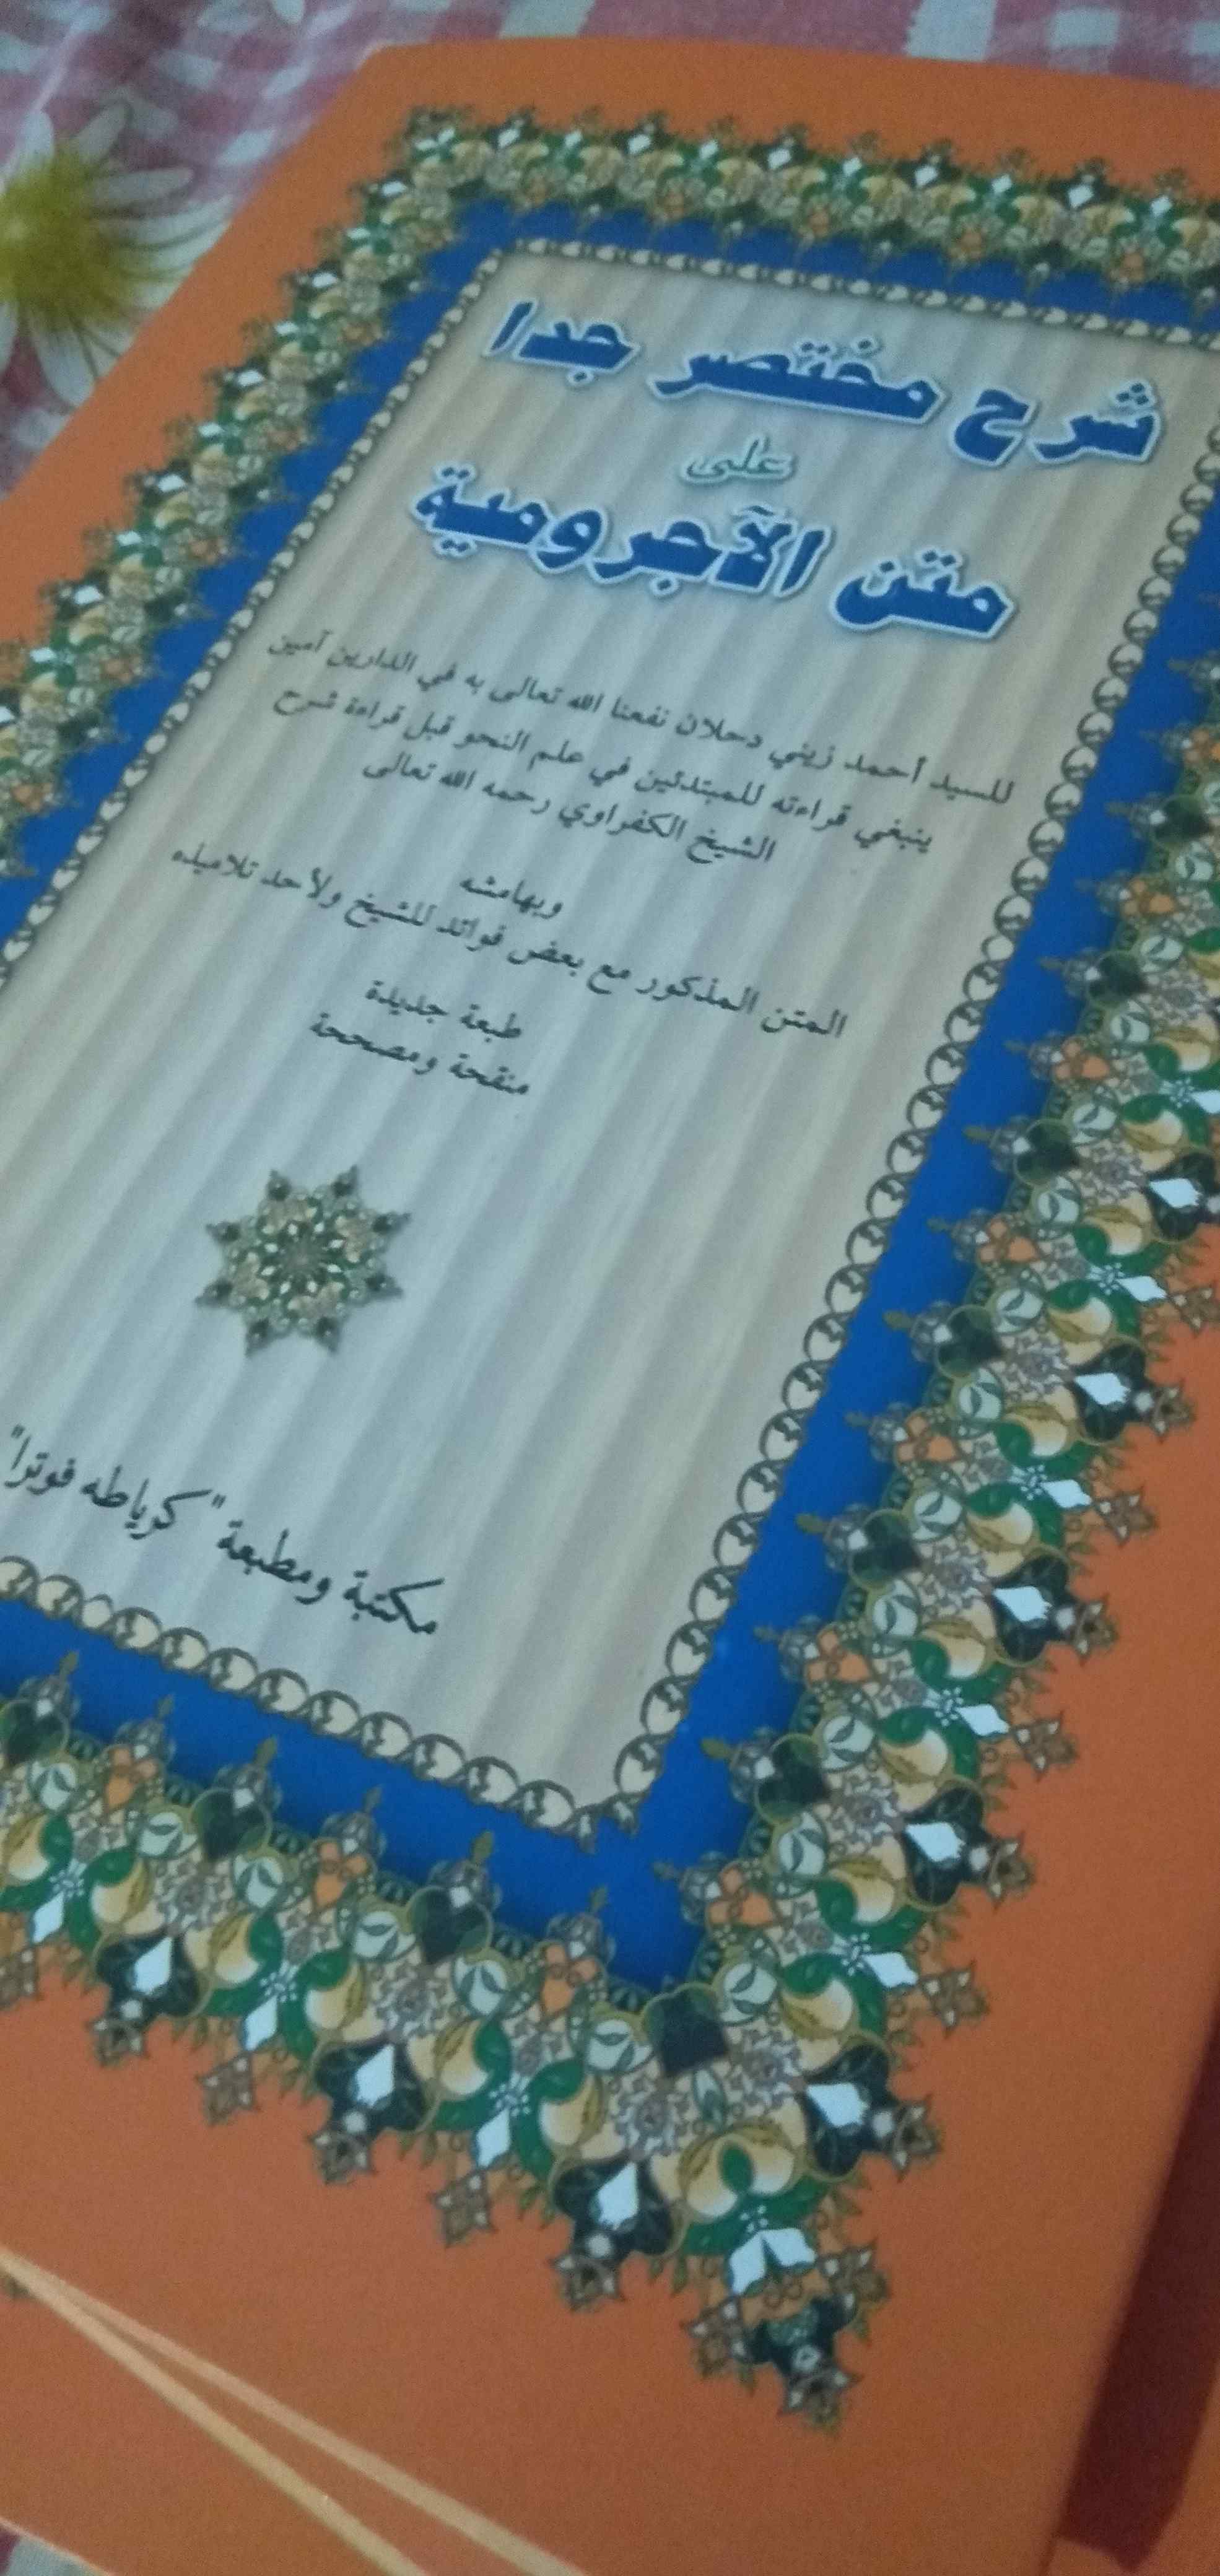 شرح مختصر جدا
على
متن الآجرومية
للسيد أحمد زيني دحلان نفعنا الله تعالى به في الدارين آمين
ينبغي قراءته للمبتدئين في علم النحو قبل قراءة شرح
الشيخ الكفراوي رحمه الله تعالى
وبهامشه
المتن المذكور مع بعض فوائد للشيخ ولأحد تلاميذه
طبعة جديدة
منقحة ومصححة
مكتبة ومطبعة "كرياطه فوترا"